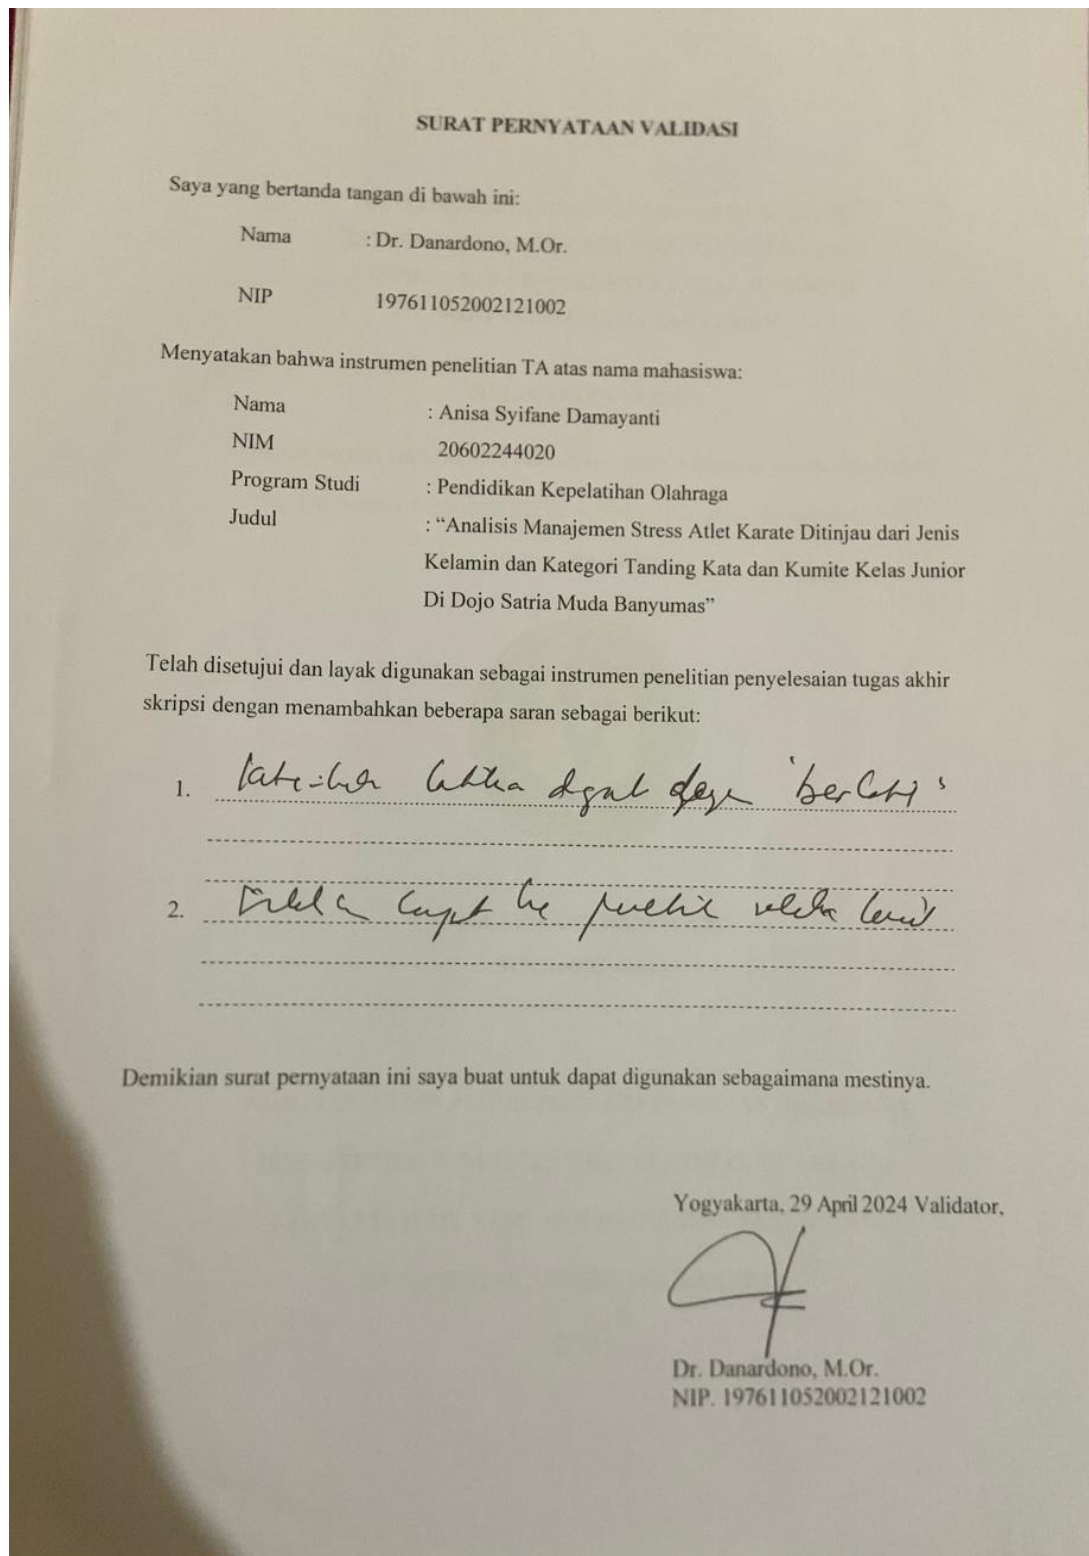 SURAT PERNYATAAN VALIDASI
Saya yang bertanda tangan di bawah ini:
Nama : Dr. Danardono, M.Or.
NIP 197611052002121002
Menyatakan bahwa instrumen penelitian TA atas nama mahasiswa:
Nama : Anisa Syifane Damayanti
NIM 20602244020
Program Studi : Pendidikan Kepelatihan Olahraga
Judul : “Analisis Manajemen Stress Atlet Karate Ditinjau dari Jenis
Kelamin dan Kategori Tanding Kata dan Kumite Kelas Junior
Di Dojo Satria Muda Banyumas”
Telah disetujui dan layak digunakan sebagai instrumen penelitian penyelesaian tugas akhir
skripsi dengan menambahkan beberapa saran sebagai berikut:
1.
2.
Demikian surat pernyataan ini saya buat untuk dapat digunakan sebagaimana mestinya.
Yogyakarta, 29 April 2024 Validator,
Dr. Danardono, M.Or.
NIP. 197611052002121002